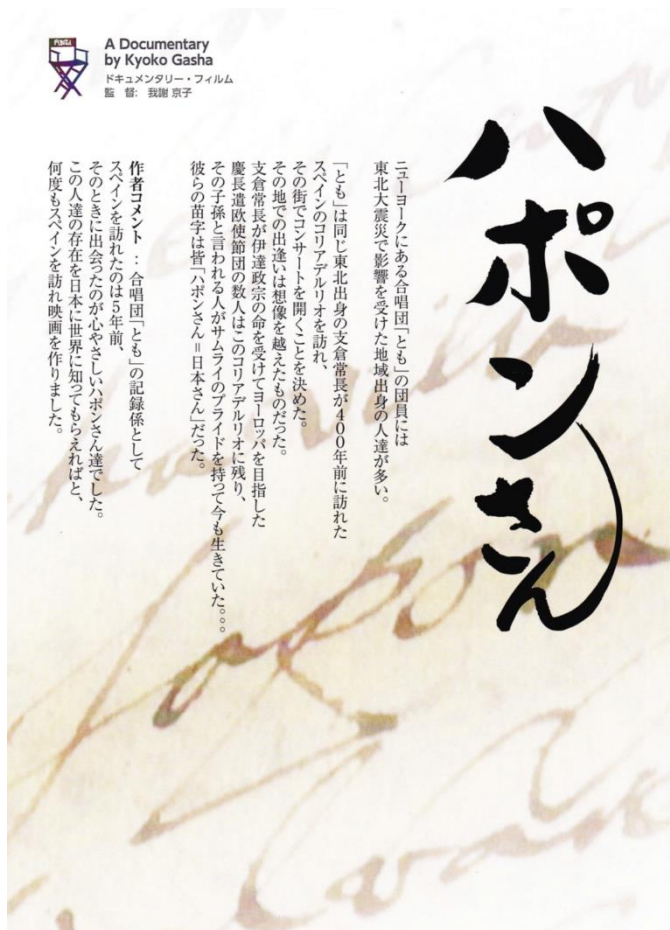 A Documentary
by Kyoko Gasha
ドキュメンタリー・フィルム
監 督: 我謝 京子
ハポンさん
ニューヨークにある合唱団「とも」の団員には
東北大震災で影響を受けた地域出身の人達が多い。
「とも」は同じ東北出身の支倉常長が400年前に訪れた
スペインのコリアデルリオを訪れ、
その街でコンサートを開くことを決めた。
その地での出逢いは想像を越えたものだった。
支倉常長が伊達政宗の命を受けてヨーロッパを目指した
慶長遣欧使節団の数人はこのコリアデルリオに残り、
その子孫と言われる人がサムライのプライドを持って今も生きていた。。。
彼らの苗字は皆「ハポンさん=日本さん」だった。
作者コメント : 合唱団「とも」の記録係として
スペインを訪れたのは5年前、
そのときに出会ったのが心やさしいハポンさん達でした。
この人達の存在を日本に世界に知ってもらえればと、
何度もスペインを訪れ映画を作りました。
Japon